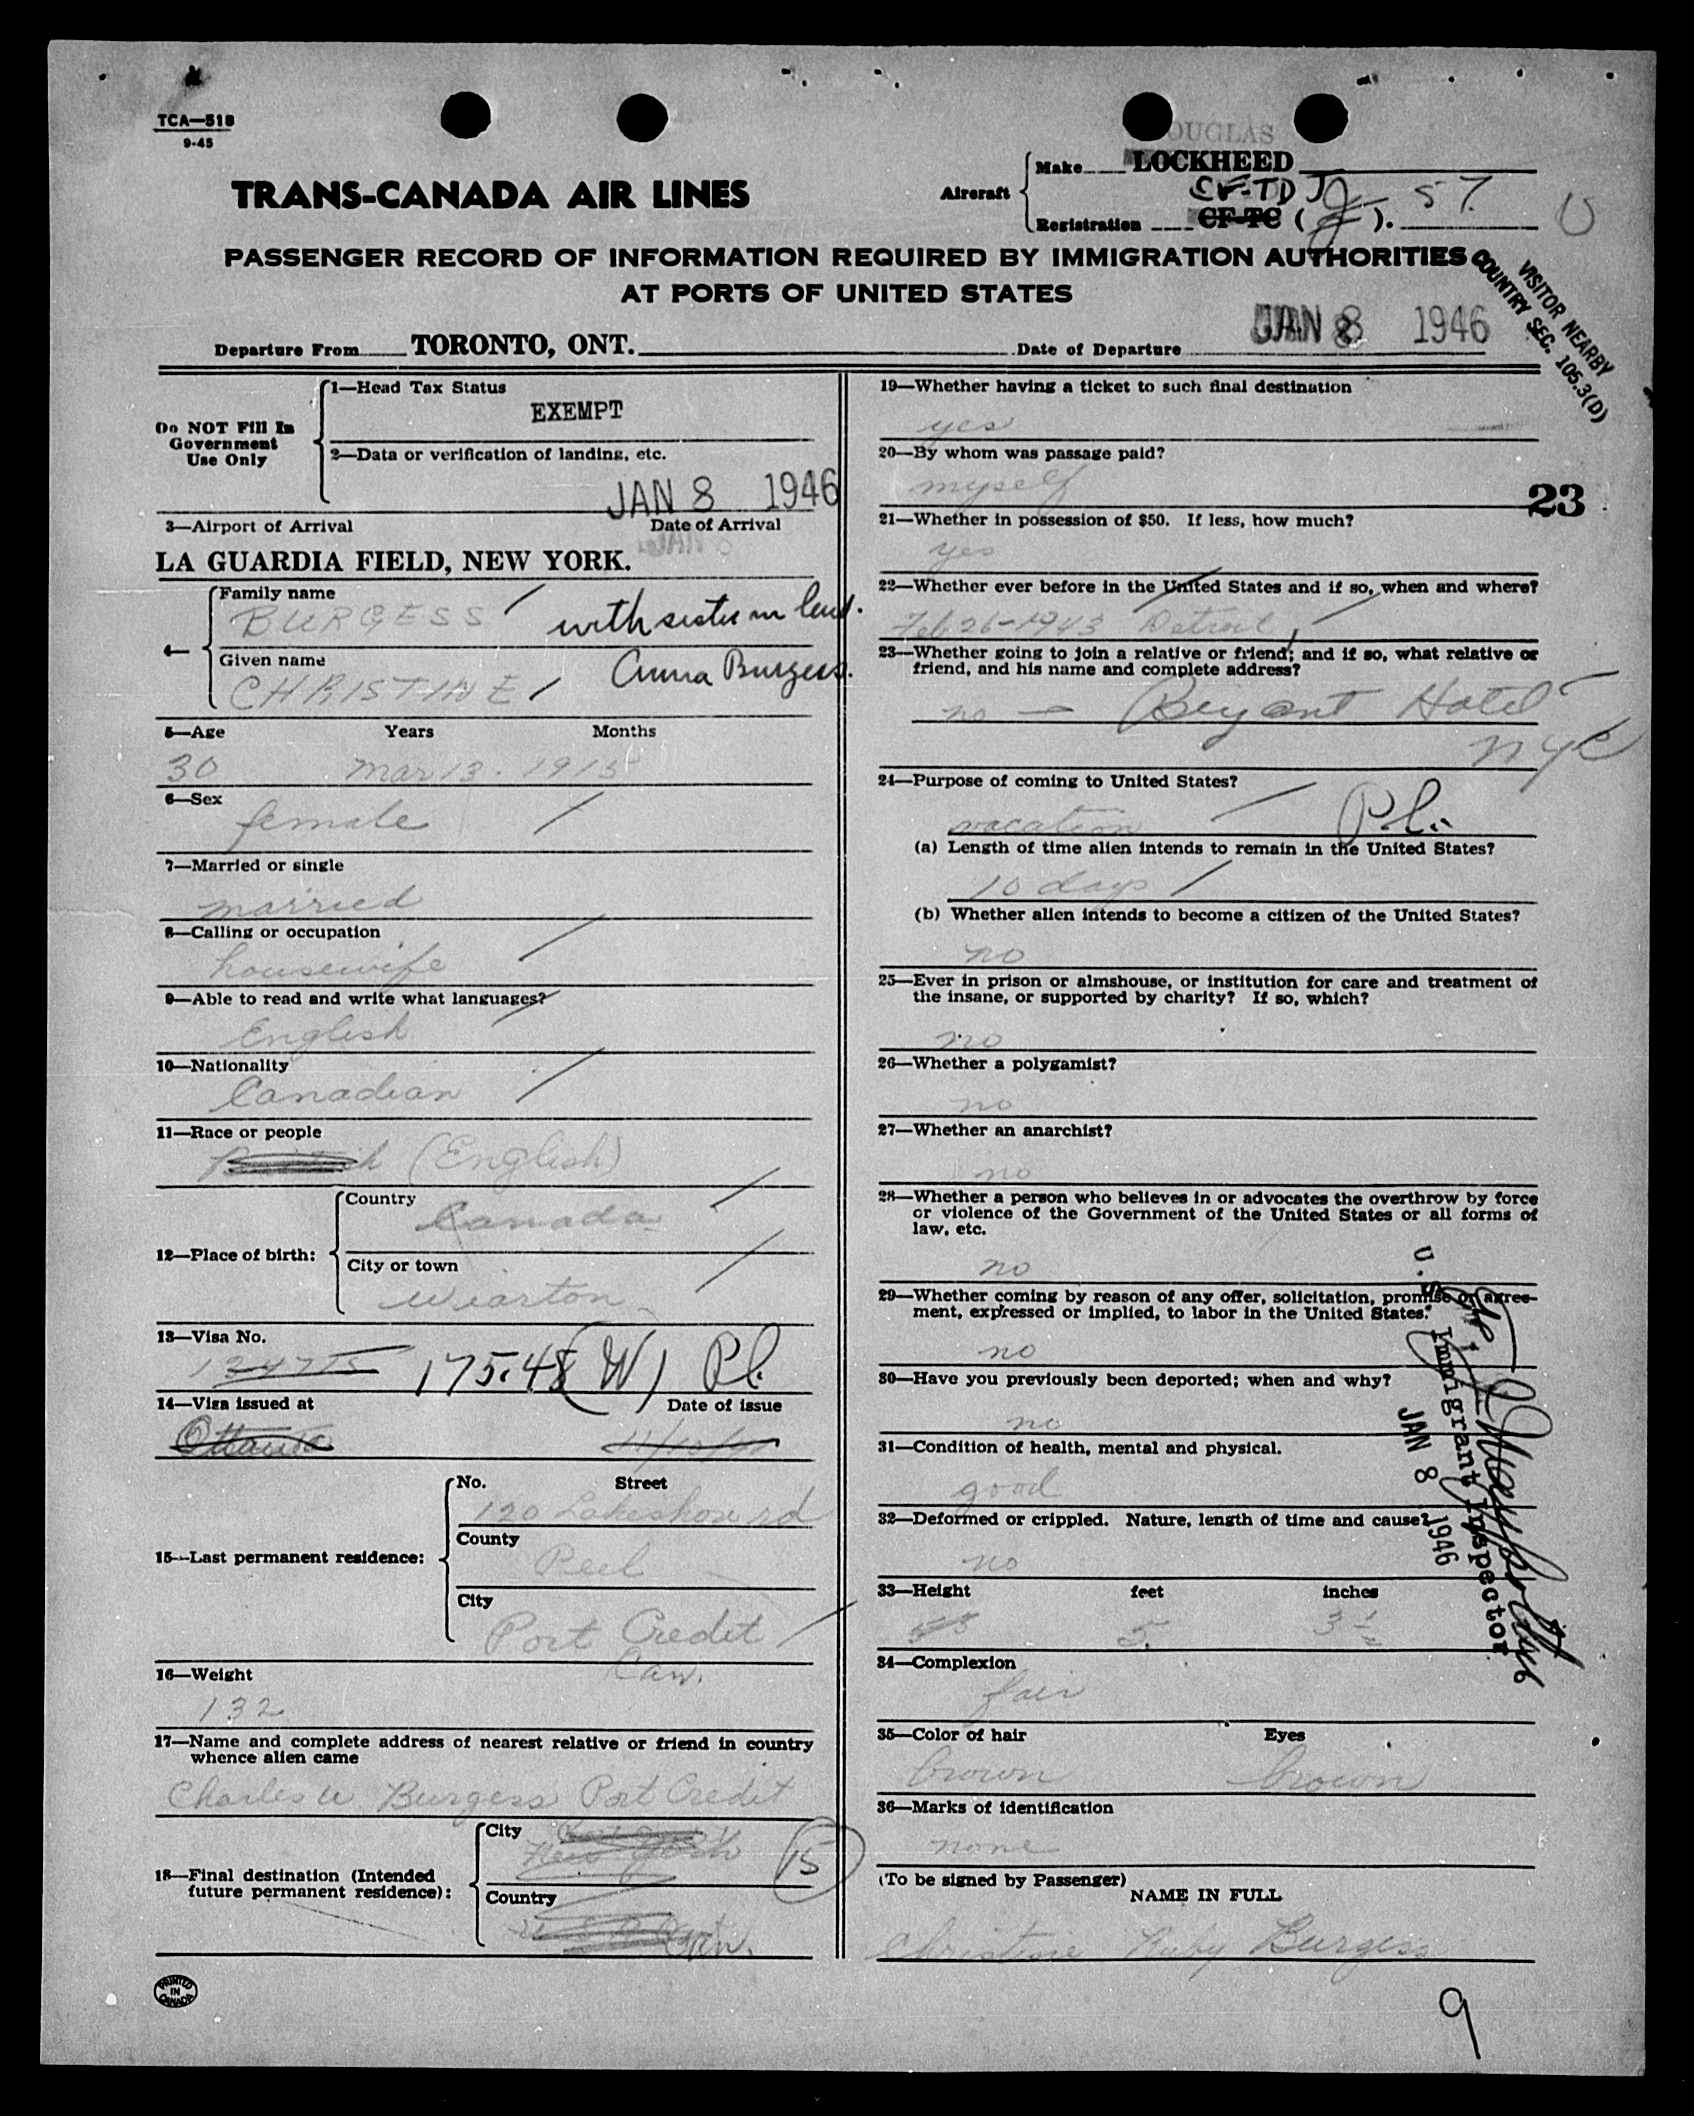 TCA—518
9-45
DOUGLAS
Make LOCKHEED
TRANS-CANADA AIR LINES
Aircraft
CF-TDJ 57
Registration CF-TC ( ).
PASSENGER RECORD OF INFORMATION REQUIRED BY IMMIGRATION AUTHORITIES
AT PORTS OF UNITED STATES
VISITOR NEARBY
COUNTRY SEC. 105.3(D)
Departure From TORONTO, ONT. Date of Departure JAN 8 1946
Do NOT Fill In
Government
Use Only
1—Head Tax Status
EXEMPT
2—Data or verification of landing, etc.
JAN 8 1946
3—Airport of Arrival Date of Arrival
LA GUARDIA FIELD, NEW YORK.
4—
Family name
BURGESS with sister in law.
Given name
CHRISTINE Anna Burgess.
5—Age Years Months
30 Mar 13. 1915
6—Sex
female
7—Married or single
married
8—Calling or occupation
housewife
9—Able to read and write what languages?
English
10—Nationality
Canadian
11—Race or people
(English)
12—Place of birth:
Country
Canada
City or town
Wiarton
13—Visa No.
175.48(W) P.l.
14—Visa issued at Date of issue
Ottawa
15—Last permanent residence:
No. Street
120 Lakeshore rd
County
Peel
City
Port Credit
Can.
16—Weight
132
17—Name and complete address of nearest relative or friend in country
whence alien came
Charles W Burgess Port Credit
18—Final destination (Intended
future permanent residence):
City
New York 15
Country
Can.
PRINTED
IN
CANADA
19—Whether having a ticket to such final destination
yes
20—By whom was passage paid?
myself
23
21—Whether in possession of $50. If less, how much?
yes
22—Whether ever before in the United States and if so, when and where?
Feb 26-1943 Detroit
23—Whether going to join a relative or friend; and if so, what relative or
friend, and his name and complete address?
no — Bryant Hotel
NYC
24—Purpose of coming to United States?
vacation P.l.
(a) Length of time alien intends to remain in the United States?
10 days
(b) Whether alien intends to become a citizen of the United States?
no
25—Ever in prison or almshouse, or institution for care and treatment of
the insane, or supported by charity? If so, which?
no
26—Whether a polygamist?
no
27—Whether an anarchist?
no
28—Whether a person who believes in or advocates the overthrow by force
or violence of the Government of the United States or all forms of
law, etc.
no
29—Whether coming by reason of any offer, solicitation, promise or agree-
ment, expressed or implied, to labor in the United States.
no
30—Have you previously been deported; when and why?
no
31—Condition of health, mental and physical.
good
32—Deformed or crippled. Nature, length of time and cause?
no
33—Height feet inches
5 3½
34—Complexion
fair
35—Color of hair Eyes
brown brown
36—Marks of identification
none
(To be signed by Passenger)
NAME IN FULL
Christine Ruby Burgess
U. S. Immigrant Inspector
JAN 8 1946
9